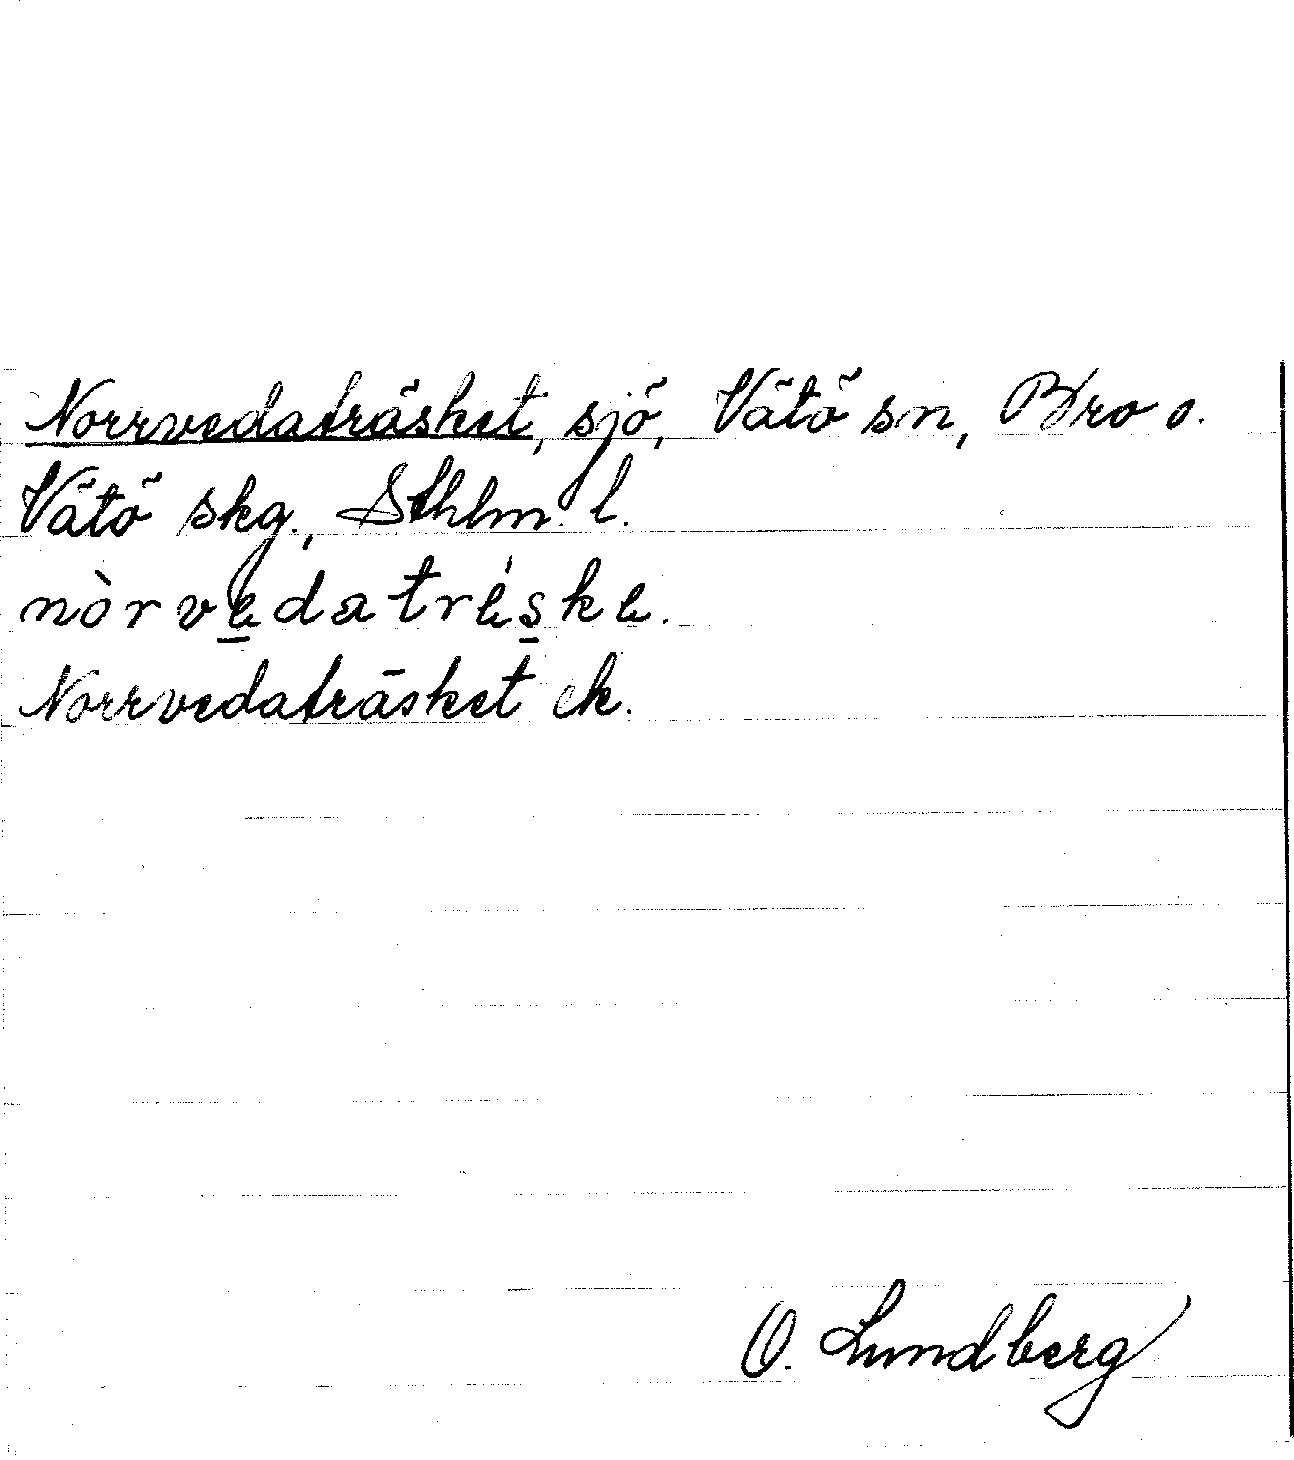 Norrvedaträsket, sjö, Vätö sn, Bro o.
Vätö skg., Sthlm. l.
nòrvedatrèske.
Norrvedaträsket ek.
O. Lundberg